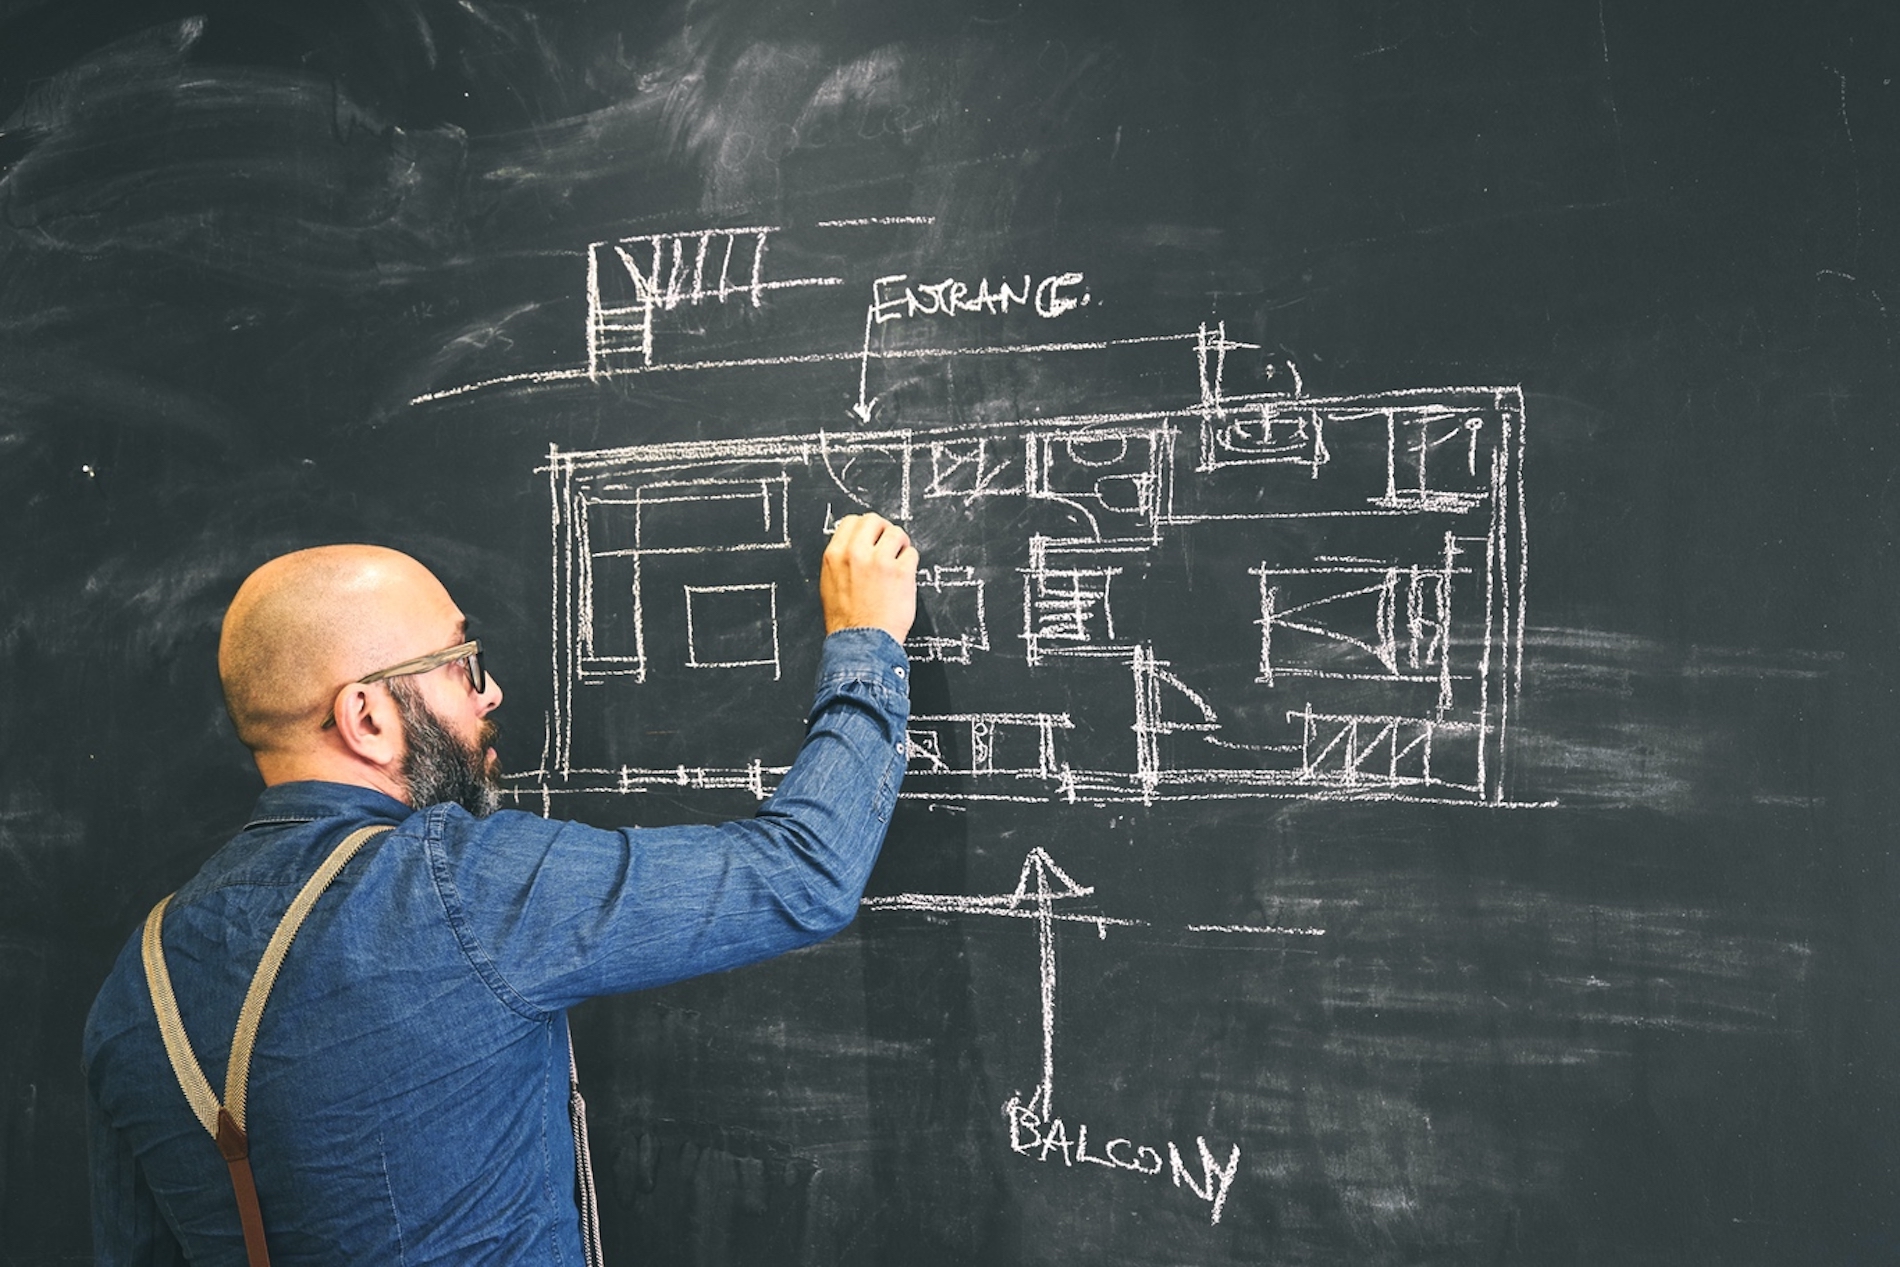 ENTRANCE
BALCONY